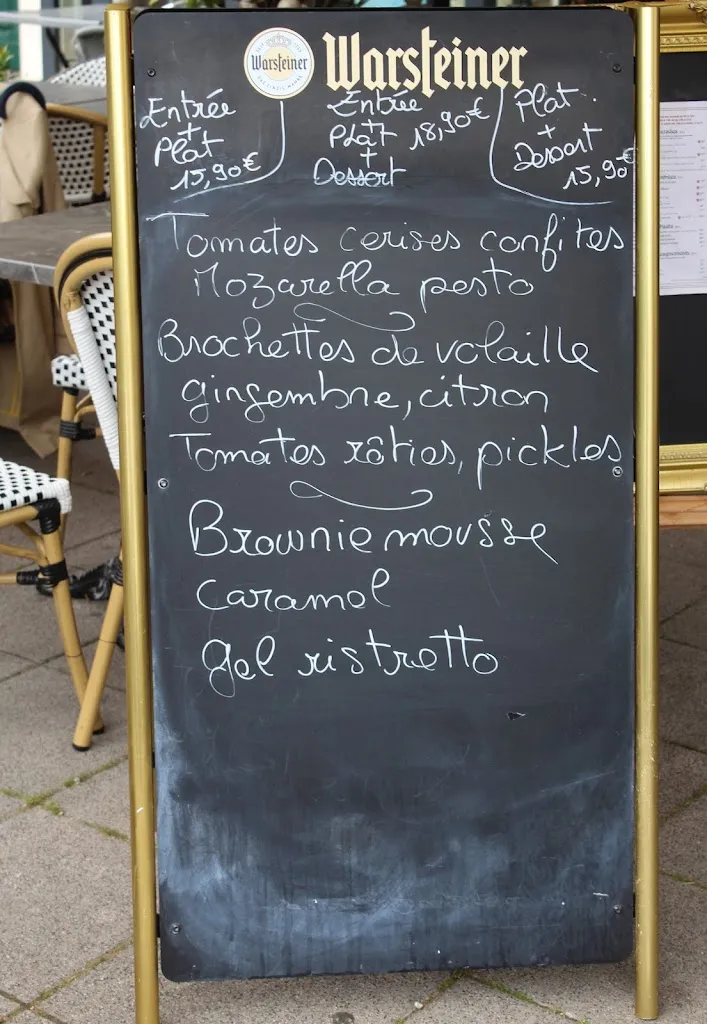 Warsteiner
Warsteiner
Entrée
+
Plat
15,90€
Entrée
+
Plat 18,90€
+
Dessert
Plat
+
Dessert
15,90€
Tomates cerises confites
Mozarella pesto
Brochettes de volaille
gingembre, citron
Tomates rôties, pickles
Brownie mousse
caramel
gel ristretto